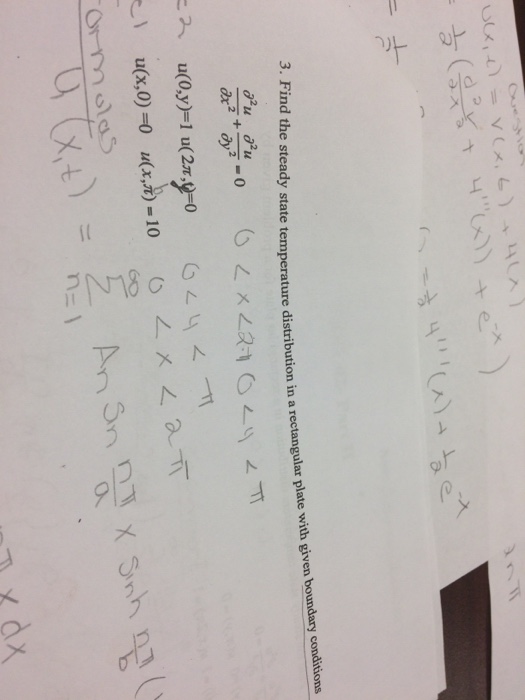 u(x,t) = v(x,t) + ψ(x)
1/2 (∂²v/∂x² + ψ''(x)) + e^-x )
= 1/2 ψ''(x) + 1/2 e^-x
3. Find the steady state temperature distribution in a rectangular plate with given boundary conditions
∂²u/∂x² + ∂²u/∂y² = 0 0 < x < 2π 0 < y < π
u(0,y)=1 u(2π,y)=0 0 < y < π
u(x,0) =0 u(x,π) = 10 0 < x < 2π
Formulas
u(x,t) = ∞ Σ n=1 An Sin nπ/a x Sinh nπ/b (
x dx